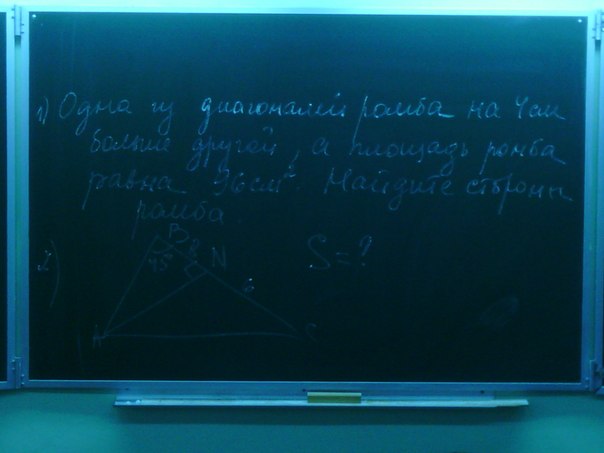 1) Одна из диагоналей ромба на 4 см
больше другой, а площадь ромба
равна 96 см². Найдите стороны
ромба.
2)
B
45°
8
N
S = ?
6
A
C